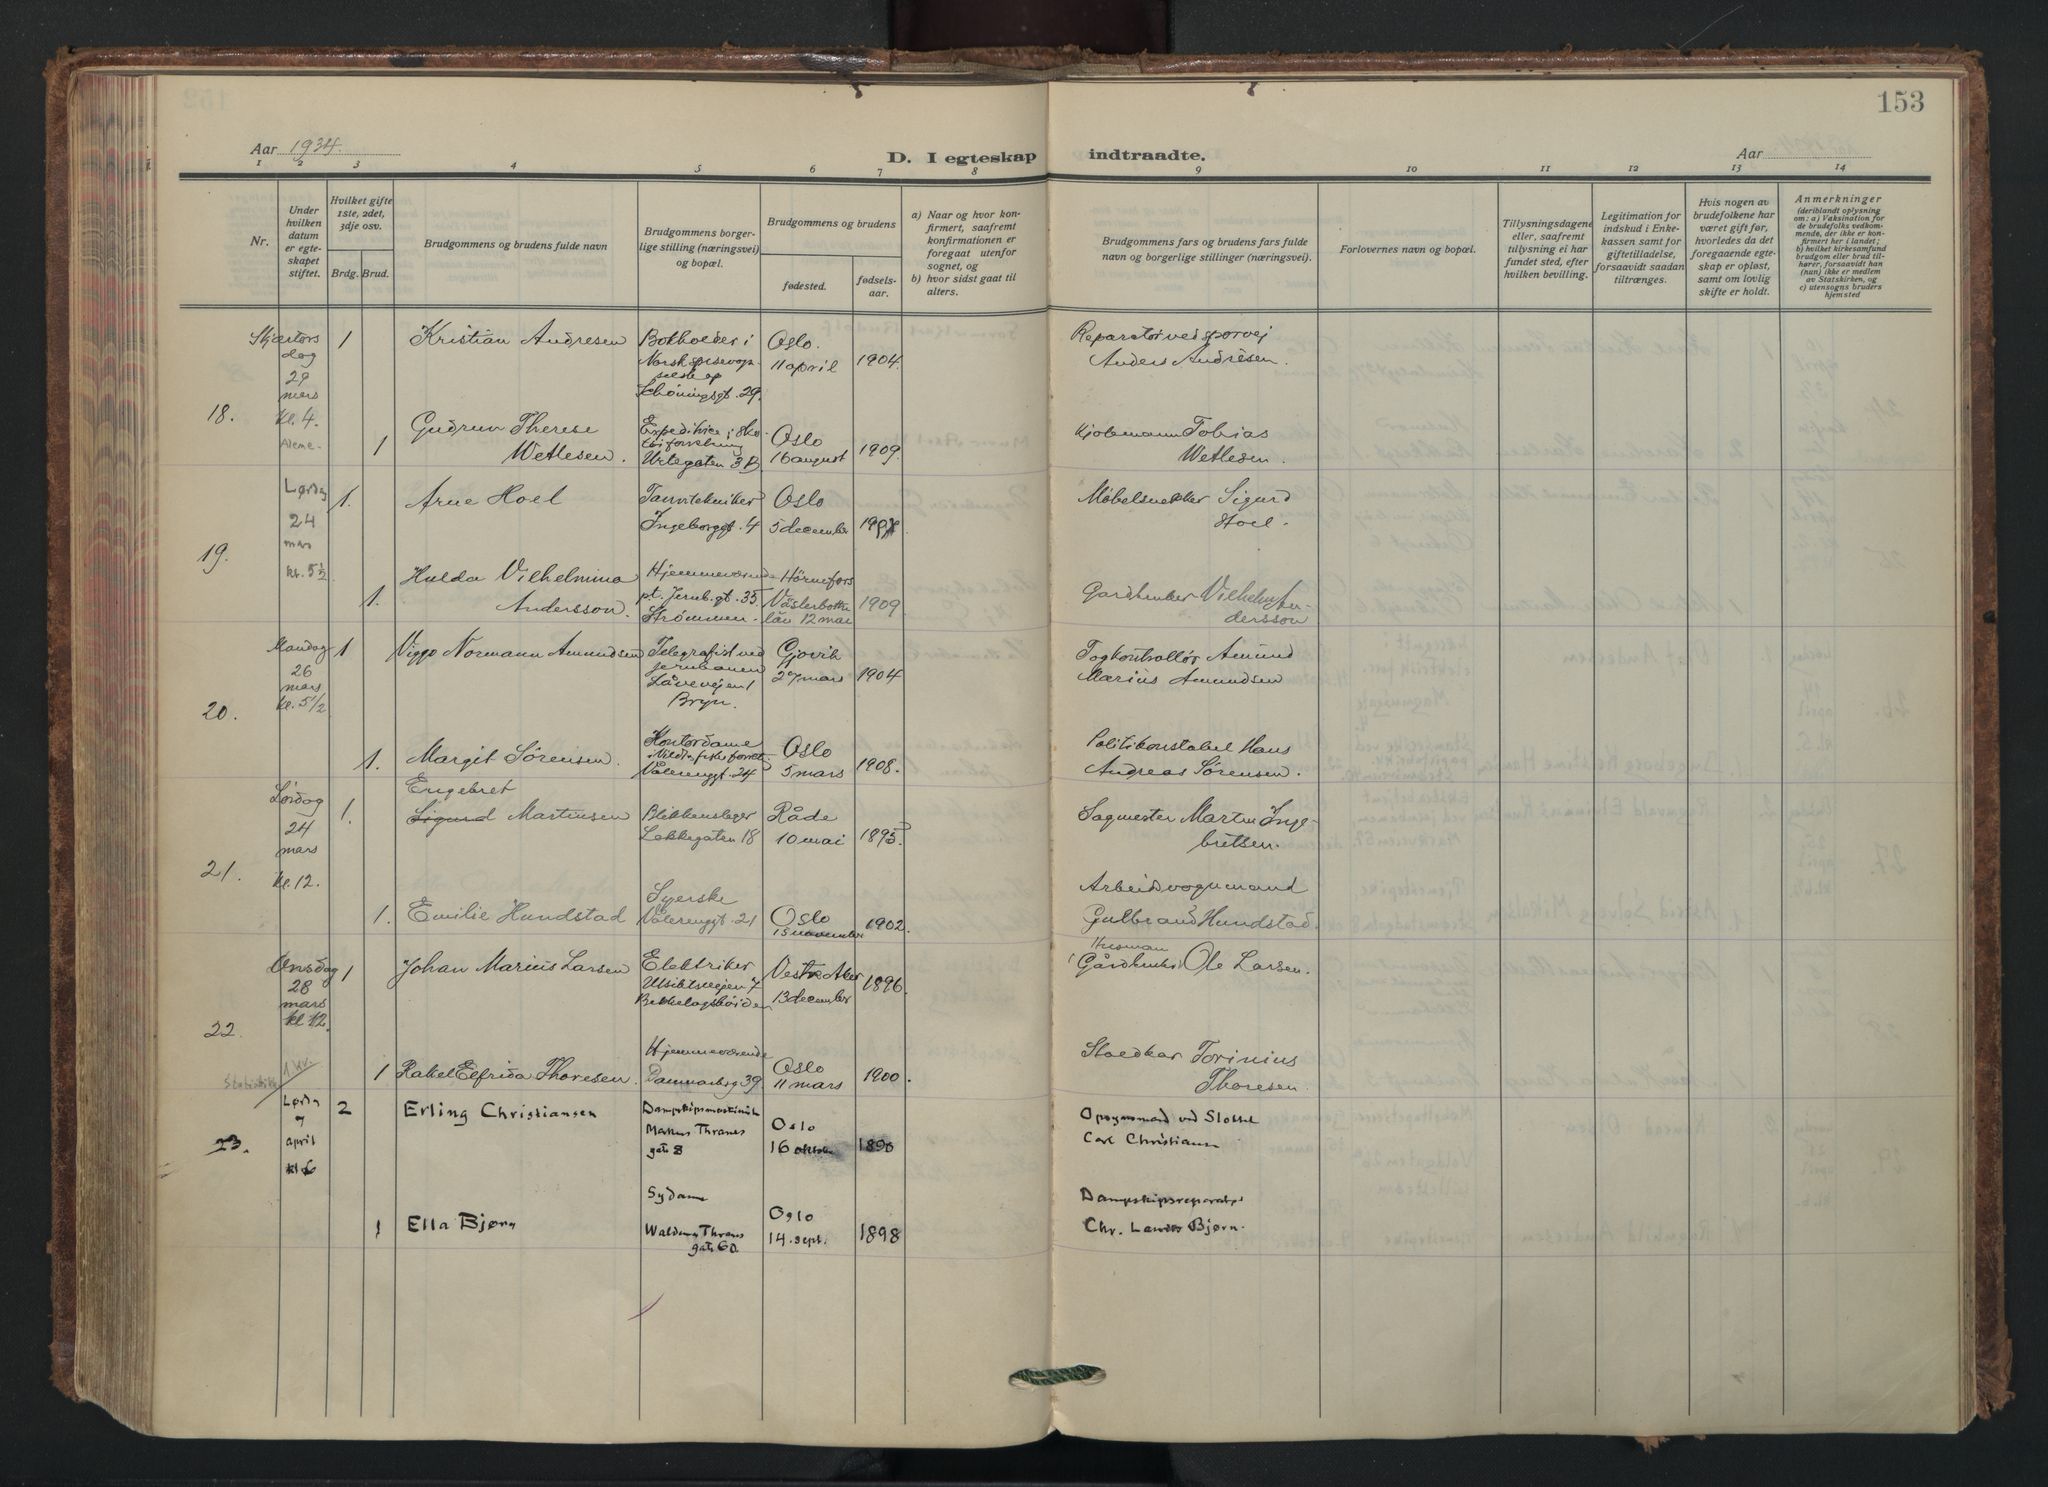 153
Aar 1934.
D. I egteskap indtraadte.
Aar
1 2 3 4 5 6 7 8 9 10 11 12 13 14
Nr.
Under hvilken datum er egteskapet stiftet.
Hvilket gifte 1ste, 2det, 3dje osv.
Brdg. Brud.
Brudgommens og brudens fulde navn
Brudgommens borgerlige stilling (næringsvei) og bopæl.
Brudgommens og brudens
fødested.
fødselsaar.
a) Naar og hvor konfirmert, saafremt konfirmationen er foregaat utenfor sognet, og
b) hvor sidst gaat til alters.
Brudgommens fars og brudens fars fulde navn og borgerlige stillinger (næringsvei).
Forlovernes navn og bopæl.
Tillysningsdagene eller, saafremt tillysning ei har fundet sted, efter hvilken bevilling.
Legitimation for indskud i Enkekassen samt for giftetilladelse, forsaavidt saadan tiltrænges.
Hvis nogen av brudefolkene har været gift før, hvorledes da det foregaaende egteskap er opløst, samt om lovlig skifte er holdt.
Anmerkninger
(deriblandt oplysning om: a) Vaksination for de brudefolks vedkommende, der ikke er konfirmert her i landet; b) hvilket kirkesamfund brudgom eller brud tilhører, forsaavidt han (hun) ikke er medlem av Statskirken, og c) utensogns bruders hjemsted
18.
Skjærtorsdag
29
mars
kl. 4.
1 Kristian Andresen
Bokholder i
Schöningsgt. 29.
Oslo.
11 april
1904.
Reparatør ved sporvej
Anders Andresen.
1 Gudrun Therese
Wetlesen.
Urtegaten 3 B
Oslo
16 august
1909.
Tobias
Wetlesen.
19.
Lørdag
24
mars
kl. 5½
1. Arne Hoel
Tanntekniker
Ingeborggt. 4
Oslo
5 december
Møbelsnekker Sigurd
Hoel.
1. Hulda Vilhelmina
Andersson.
Hjemmeværende
pt. Jernb.gt. 35
Strømmen.
Hörnefors
Västerbotten
län 12 mai
1909.
Gardbruker Vilhelm An-
dersson
20.
Mandag
26
mars
kl. 5½
1 Viggo Normann Amundsen
Telegrafist ved
jernbanen
Bryn.
Gjøvik
27 mars
1904
Togkontrollør Amund
Marius Amundsen
1. Margit Sørensen.
Kontordame
Vålerenggt. 24
Oslo
5 mars
1908.
Politikonstabel Hans
Andreas Sørensen.
21.
Lørdag
24
mars
kl. 12.
1. Engebret
Sigurd Martinsen
Blikkenslager
Lakkegaten 18
Råde
10 mai
1895
Sagmester Martin Inge-
bretsen.
1. Emilie Hundstad
Syerske
Vålerenggt. 21
Oslo
15 november
1902.
Arbeidsvognmand
Gulbrand Hundstad.
22.
Onsdag
28
mars
kl 12.
1 Johan Marius Larsen
Elektriker
Utsiktsveien 7
Bekkelagshøiden
Vestre Aker
13 december
1896.
Husman
Gårdbruker Ole Larsen.
1 Rakel Elfrida Thoresen.
Hjemmeværende
Danmarksg 39
Oslo
11 mars
1900.
Torinius
Thoresen.
23.
Lørdag
april
kl 6
2 Erling Christiansen
Dampskipsmaskinist
Markus Thranes
gate 8
Oslo
16 oktober
1890
Opsynsmand ved Slottet
Carl Christiansen
1 Ella Bjørn
Sydame
Waldemar Thranes
gate 6 D.
Oslo
14. sept.
1898
Dampskipsreparatør
Chr. Bjørn.